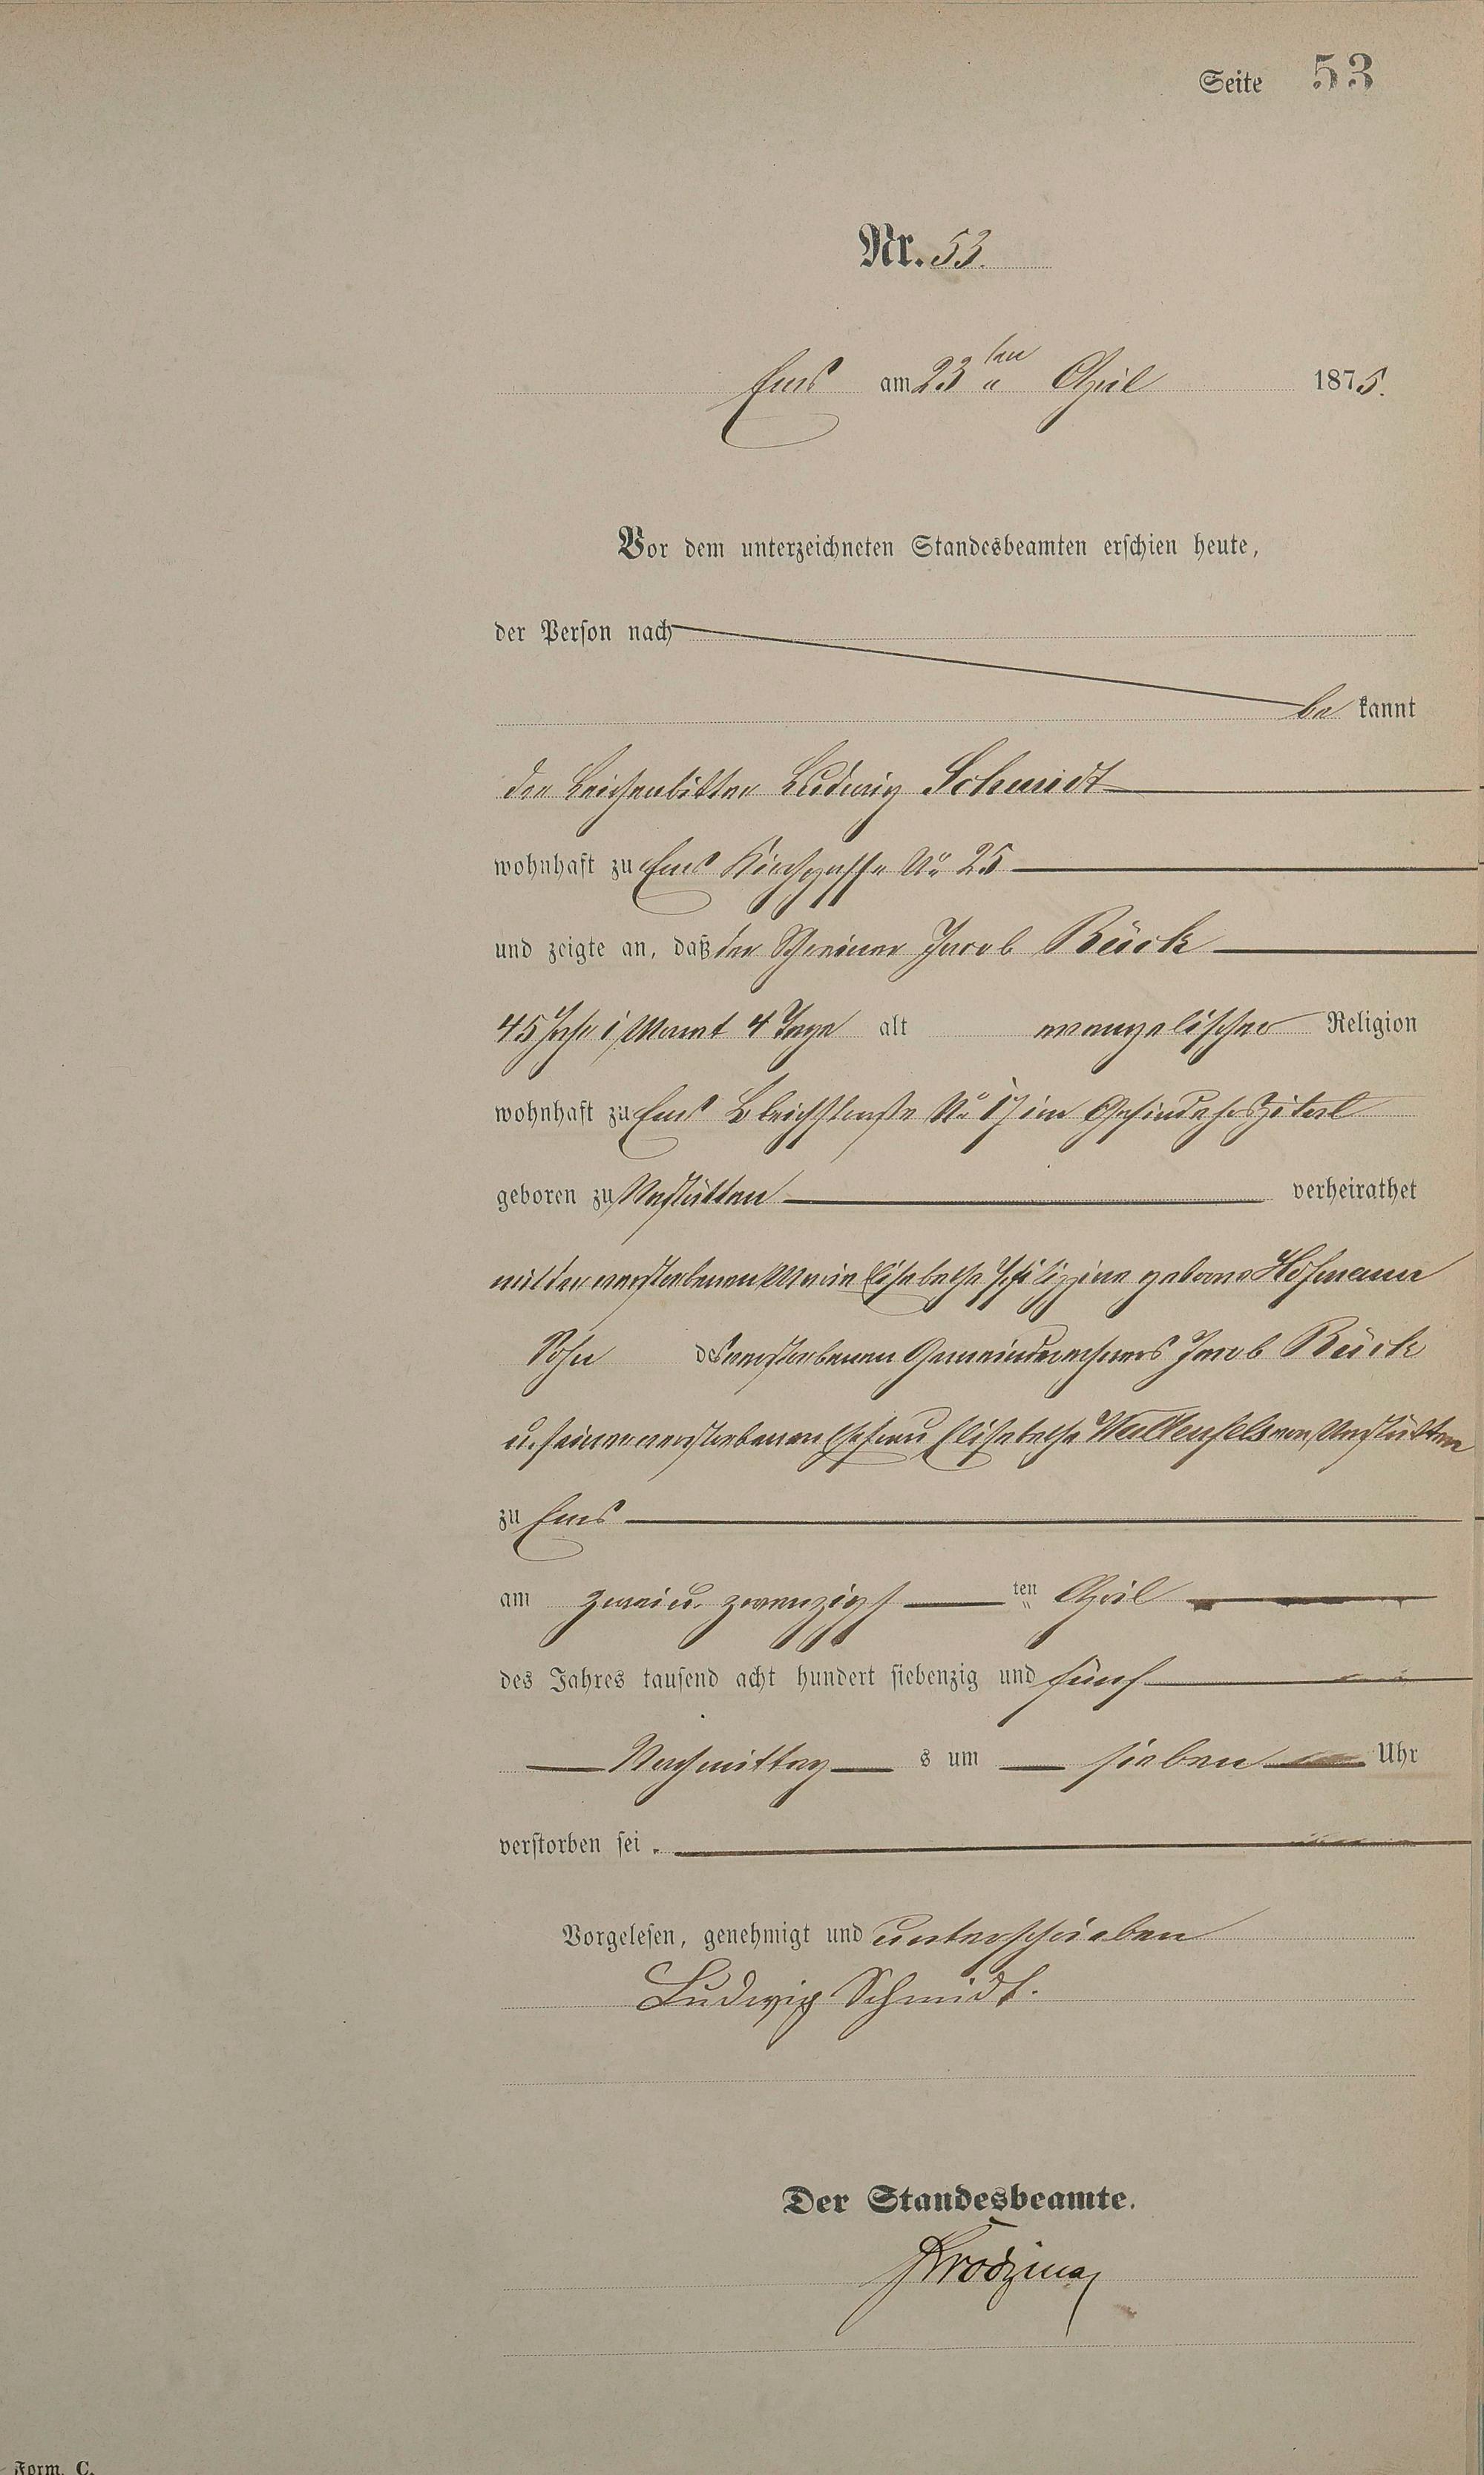 Seite 53
Nr. 53.
Ems am 23ten April 1875.
Vor dem unterzeichneten Standesbeamten erschien heute,
der Person nach
be kannt
der Leichenbitter Ludwig Schmidt
wohnhaft zu Ems Kirchgasse No 25
und zeigte an, daß der Schreiner Jacob Bück
45 Jahr 1 Monat 4 Tage alt evangelischer Religion
wohnhaft zu Ems Bleichstraße No 17 im Gesindehospital
geboren zu Nastätten verheirathet
mit der verstorbenen Marie Elisabethe Philippine geborne Hofmann
Sohn des verstorbenen Gemeinderechners Jacob Bück
u. seiner verstorbenen Ehefrau Elisabethe von Nastätten
zu Ems
am zwei u. zwanzigsten April
des Jahres tausend acht hundert siebenzig und fünf
Nachmittag s um sieben Uhr
verstorben sei.
Vorgelesen, genehmigt und unterschrieben
Ludwig Schmidt.
Der Standesbeamte.
Form. C.